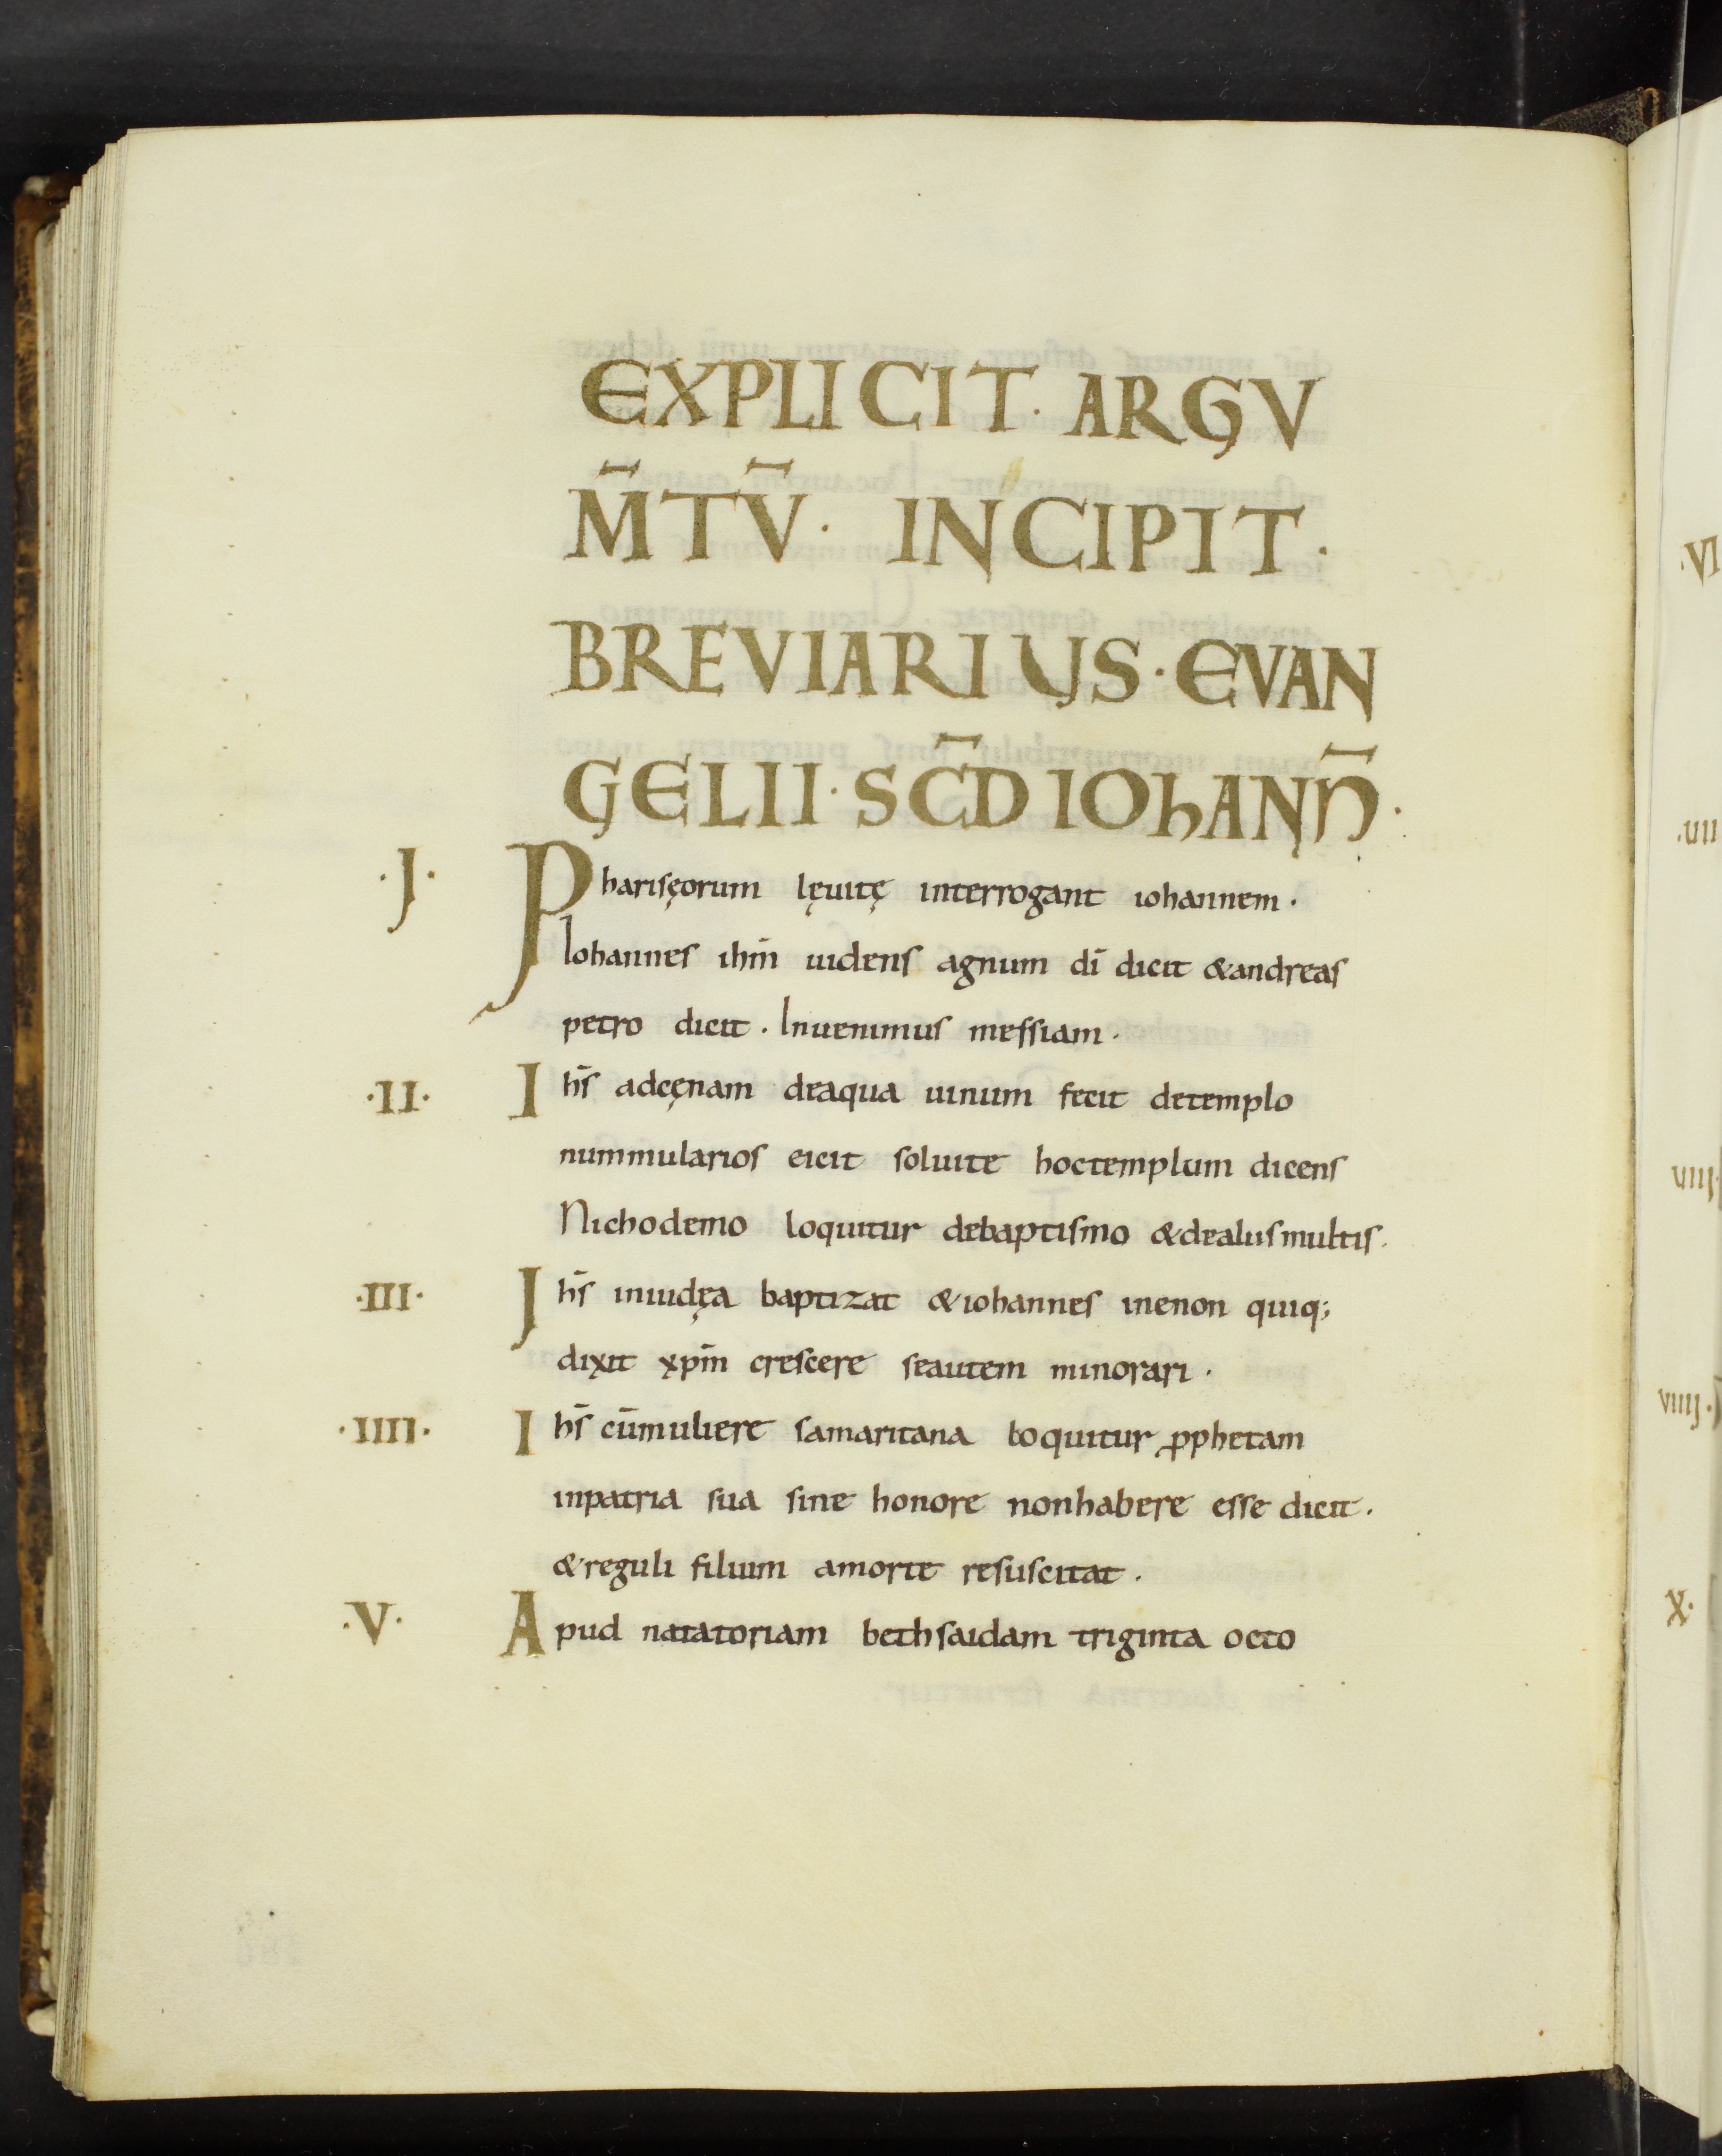 EXPLICIT · ARGV
M̄TV̄ · INCIPIT ·
BREVIARIUS · EVAN
GELII · SC̄D IOhANN̄ ·
·I· Pharisęorum lęuitę interrogant iohannem ·
Iohannes ihm̄ uidens agnum dī dicit &andreas
petro dicit · Inuenimus messiam ·
·II· Ihs̄ adcęnam deaqua uinum fecit detemplo
nummularios eicit soluite hoctemplum dicens
Nichodemo loquitur debaptismo &dealiismultis ·
·III· Ihs̄ iniudęa baptizat &iohannes inenon quiq;
dixit xpm̄ crescere seautem minorari ·
·IIII· Ihs̄ cūmuliere samaritana loquitur ꝓphetam
inpatria sua sine honore nonhabere esse dicit ·
&reguli filium amorte resuscitat ·
·V· Apud natatoriam bethsaidam triginta octo
VI
·VII
VIII·
VIIII·
X·